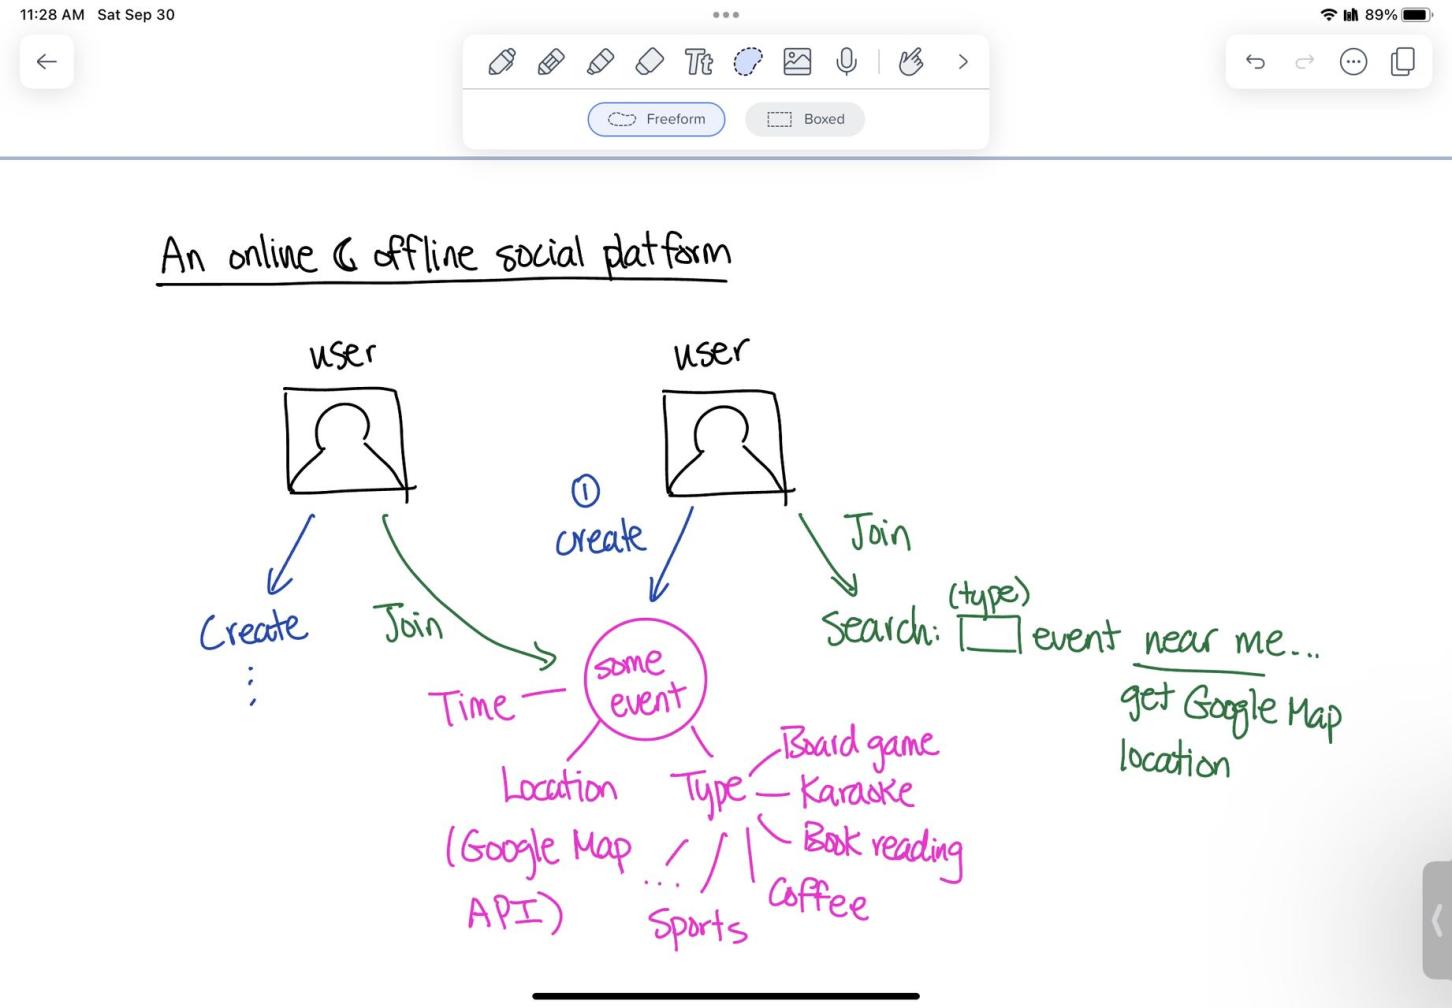 11:28 AM Sat Sep 30
89%
Tt
Freeform
Boxed
An online & offline social platform
user
user
①
create
Join
Create
Join
(type)
Search: event near me...
get Google Map
location
some
event
Time
Location
(Google Map
API)
Type
Board game
Karaoke
Book reading
Coffee
Sports
...